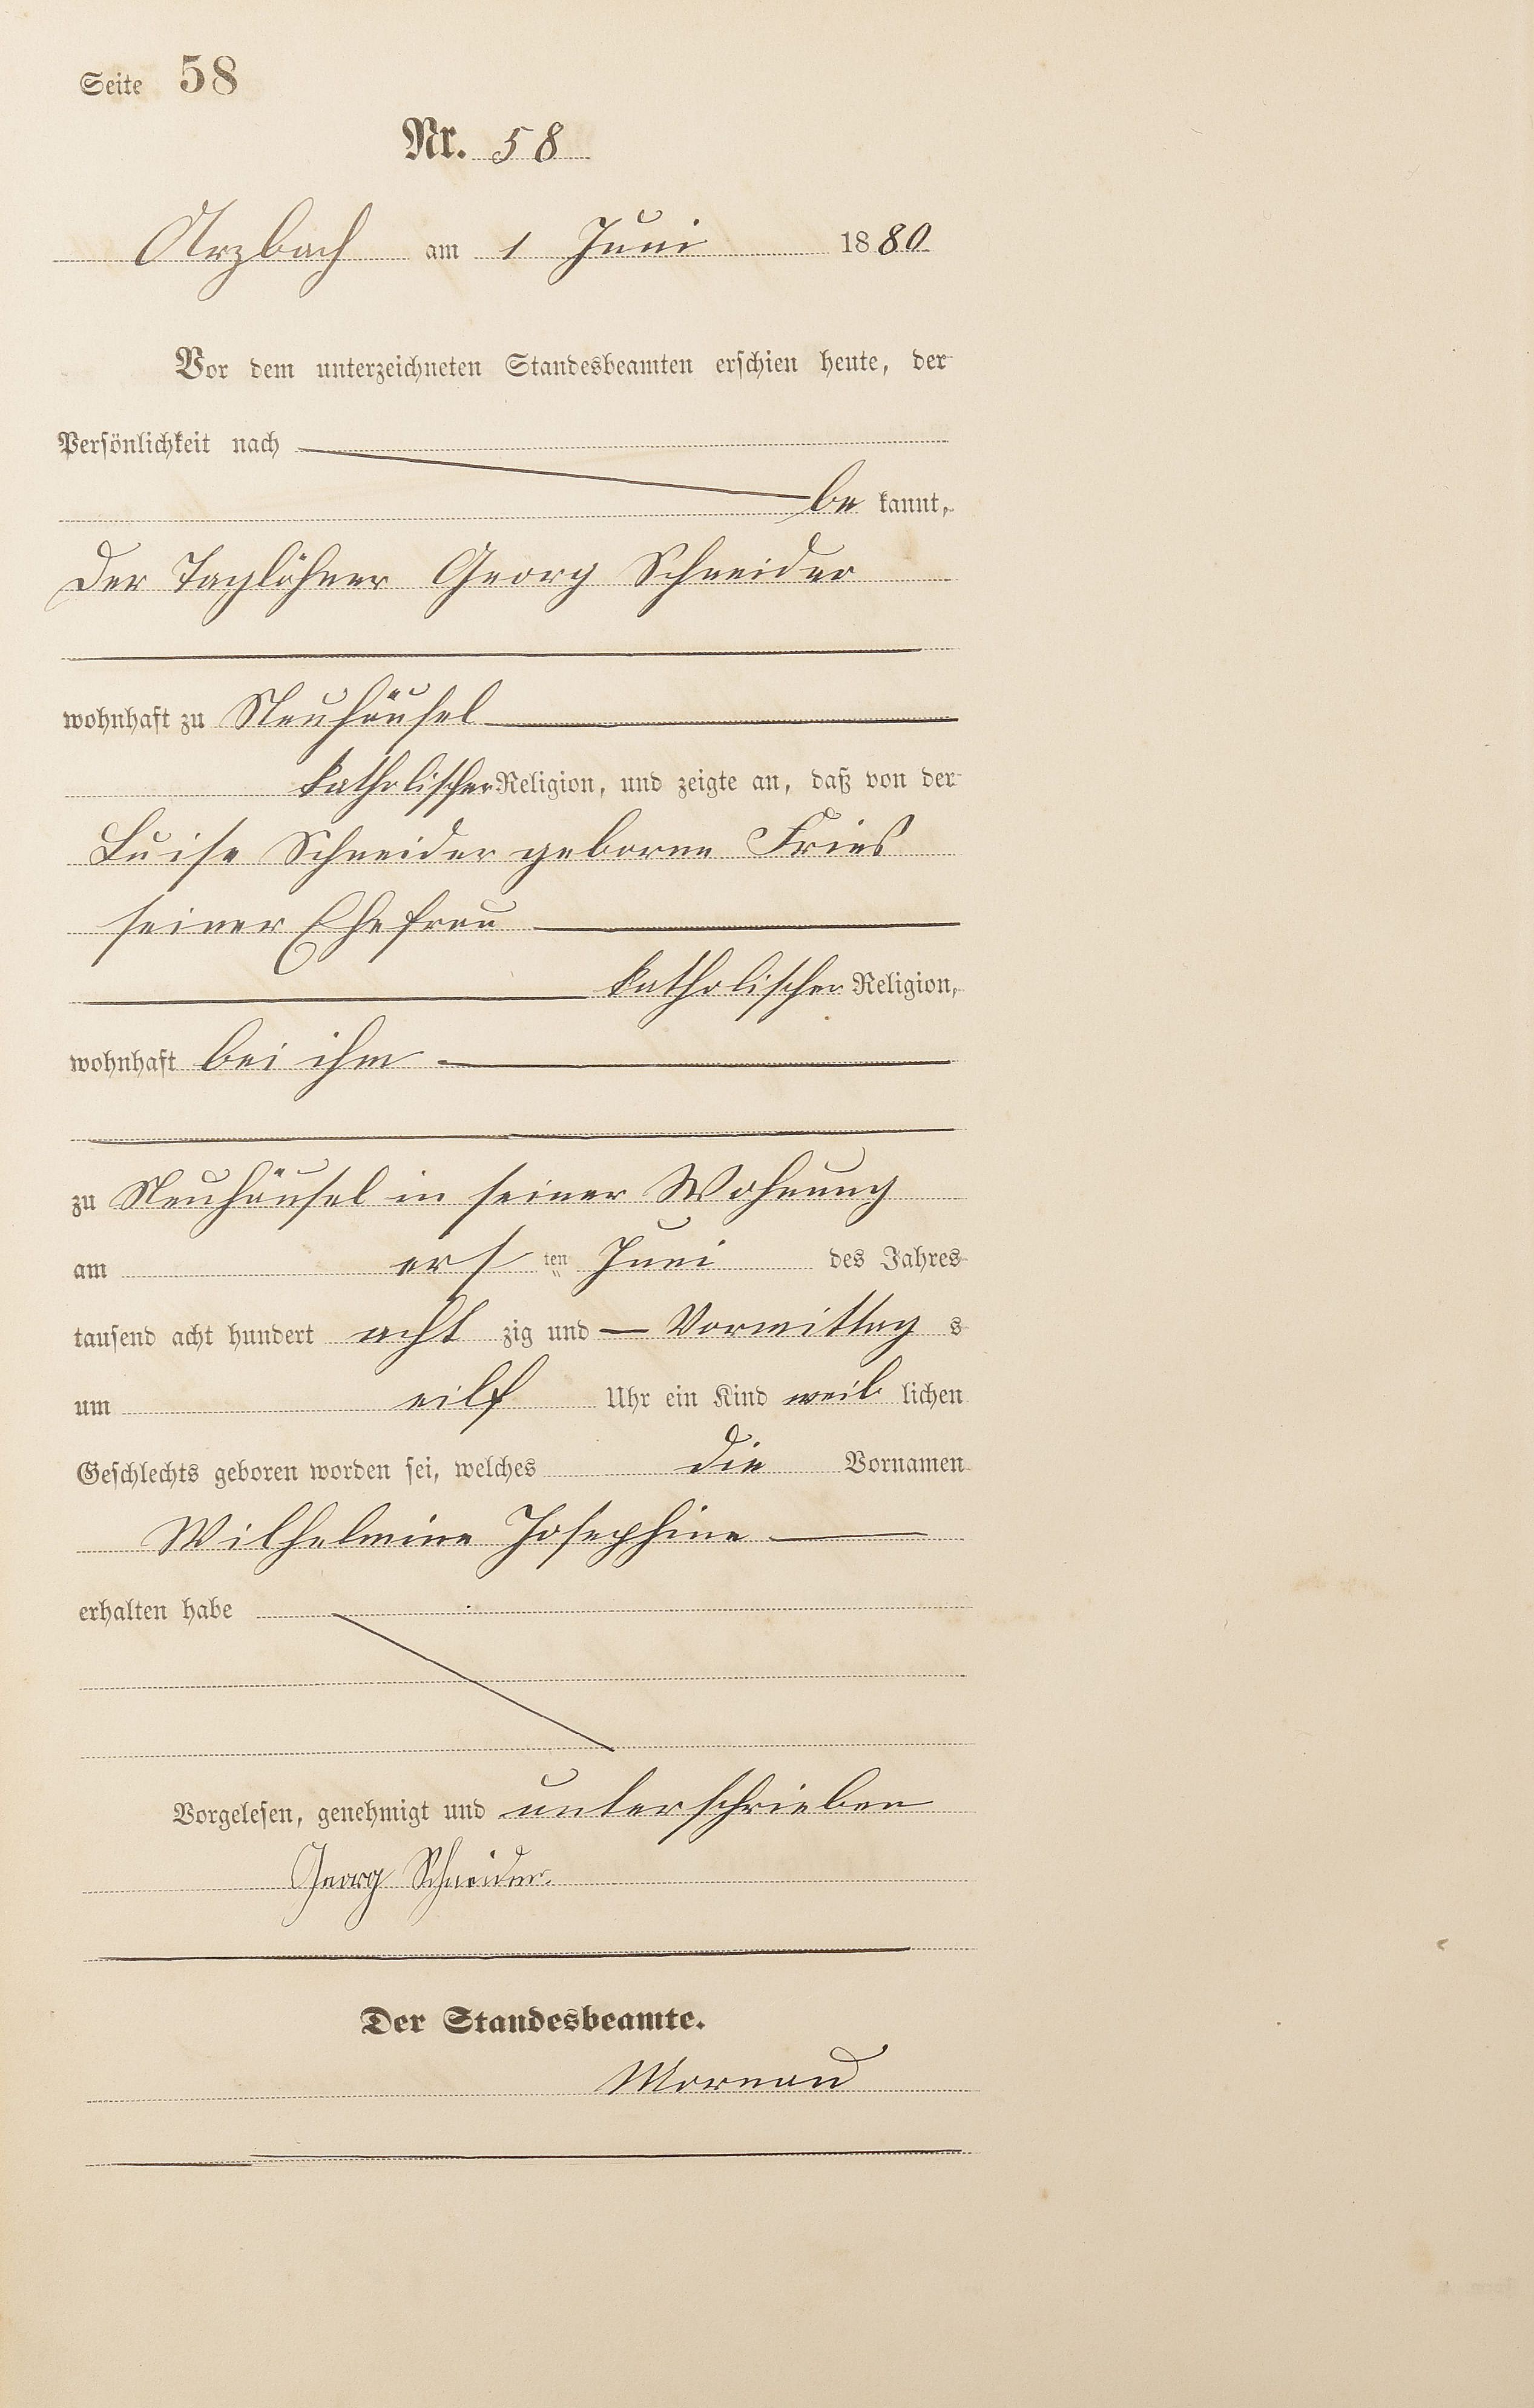 Seite 58
Nr. 58
Arzbach am 1 Juni 1880
Vor dem unterzeichneten Standesbeamten erschien heute, der
Persönlichkeit nach
be kannt,
Der Taglöhner Georg Schneider
wohnhaft zu Neuhäusel
katholischer Religion, und zeigte an, daß von der
Luise Schneider geborne Fries
seiner Ehefrau
katholischer Religion,
wohnhaft bei ihm
zu Neuhäusel in seiner Wohnung
am ers ten Juni des Jahres
tausend acht hundert acht zig und — Vormittag s
um eilf Uhr ein Kind weib lichen
Geschlechts geboren worden sei, welches die Vornamen
Wilhelmine Josephine
erhalten habe
Vorgelesen, genehmigt und unterschrieben
Georg Schneider.
Der Standesbeamte.